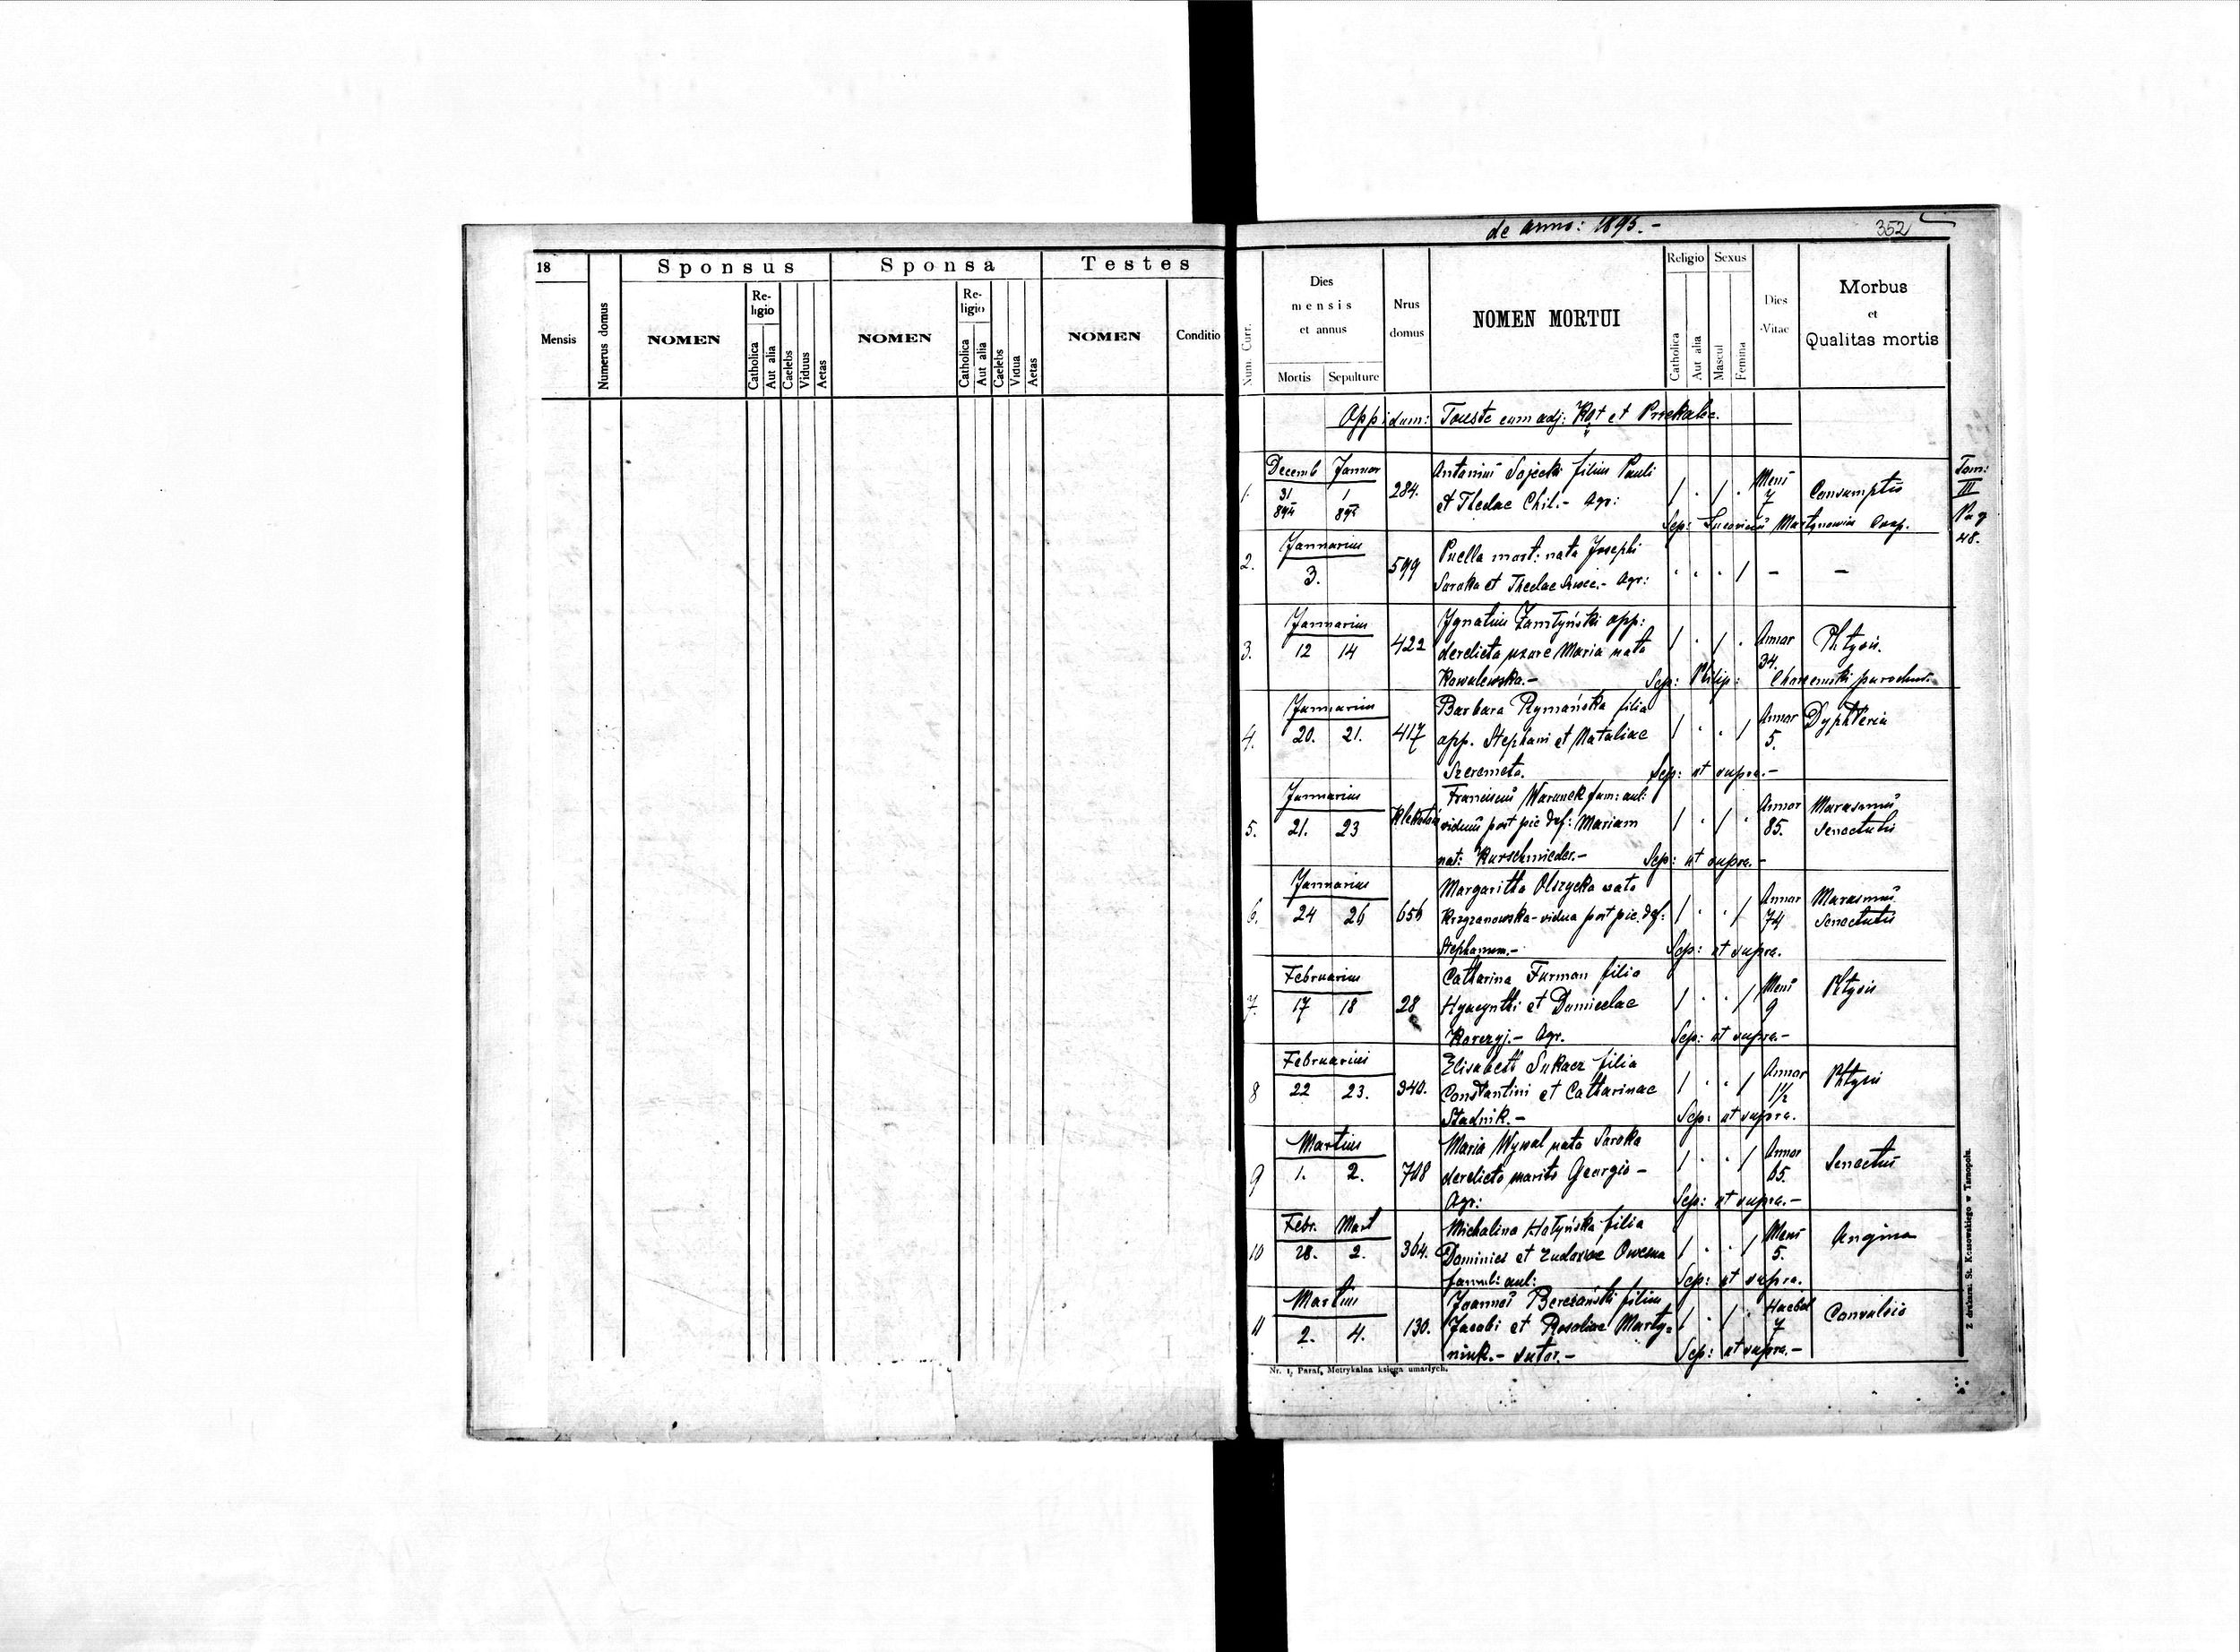 18
Mensis
Numerus domus
Sponsus
NOMEN
Re-
ligio
Catholica
Aut alia
Caelebs
Viduus
Aetas
Sponsa
NOMEN
Re-
ligio
Catholica
Aut alia
Caelebs
Vidua
Aetas
Testes
NOMEN
Conditio
de anno: 1895.-
352
Num. Curr.
Dies
mensis
et annus
Mortis
Sepulture
Nrus
domus
NOMEN MORTUI
Religio
Catholica
Aut alia
Sexus
Mascul
Femina
Dies
Vitae
Morbus
et
Qualitas mortis
Oppidum: Touste cum adj:
Tom:
III
Pag
48.
1.
Decemb Januar
31 1
894 895
284.
Antonius Sajecki filius Pauli
et Theclae Chil.- Agr:
Mens
7
Consumptio
Sep: Martynowicz Coop.
2.
Januarius
3.
599
Puella mort: nata Josephi
Soroka et Theclae - Agr:
- -
3.
Januarius
12 14
422
Ignatius opp:
derelicta uxore Maria nata
Kowalewska.-
Annor
34.
Phtysis.
Sep: Philip:
4.
Januarius
20. 21.
417
Barbara Rymańska filia
opp. Stephani et Nataliae
Szeremeta.
Annor
5.
Dyphteria
Sep: ut supra.-
5.
Januarius
21. 23
Franciscus Warunek fam: aul:
viduus post pie def: Mariam
nat: Kurschmieder.-
Annor
85.
Marasmus
Senectutis
Sep: ut supra.-
6.
Januarius
24 26
656
Margaritha Olszycka nata
Krzyzanowska - vidua post pie. def:
Stephanum.-
Annor
74
Marasmus
Senectutis
Sep: ut supra.
7.
Februarius
17 18
28
Catharina Furman filia
Hyacynthi et Dumicelae
Korczyj.- Agr.
Mens
9
Phtysis
Sep: ut supra.-
8
Februarius
22 23.
340.
Elisabeth Sukacz filia
Constantini et Catharinae
Stadnik.-
Annor
1½
Phtysis
Sep: ut supra.
9
Martius
1. 2.
708
Maria Wywal nata Soroka
derelicto marito Georgio -
Agr:
Annor
65.
Senectus
Sep: ut supra.-
10
Febr. Mart
28. 2.
364.
Michalina Hołyńska filia
Dominici et Eudoxiae
famul: aul:
Mens
5.
Angina
Sep: ut supra.
11
Martius
2. 4.
130.
Joannes Bereżański filius
Jacobi et Rosaliae Marty=
niuk.- sutor.-
Hebd
7
Convulsio
Sep: ut supra.-
Nr. 1, Paraf, Metrykalna księga umarłych.
Z drukarni St. Kossowskiego w Tarnopolu.